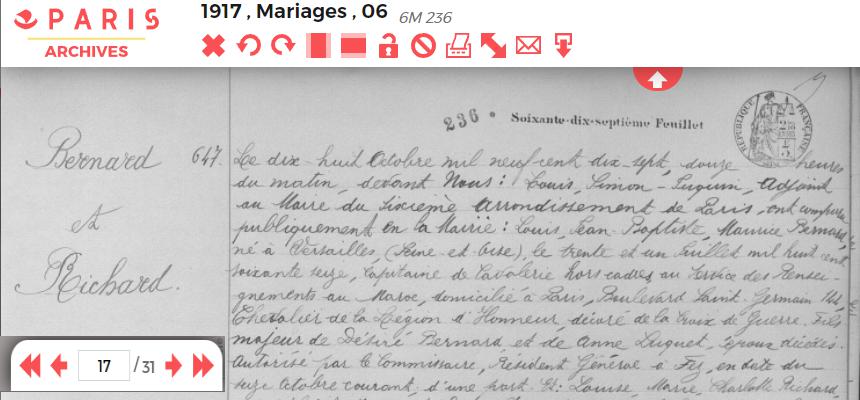 PARIS
ARCHIVES
1917 , Mariages , 06 6M 236
236 • Soixante-dix-septième Feuillet
RÉPUBLIQUE FRANÇAISE
Bernard
et
Richard.
647. Le dix-huit Octobre mil neuf cent dix-sept, douze heures
du matin, devant Nous: Louis, Simon-Luquin, Adjoint
au Maire du Sixième arrondissement de Paris, ont comparu
publiquement en la Mairie: Louis, Jean-Baptiste, Maurice Bernard,
né à Versailles, (Seine-et-Oise), le trente et un Juillet mil huit cent
soixante seize, Capitaine de Cavalerie hors cadres au Service des Rensei-
gnements au Maroc, domicilié à Paris, Boulevard Saint-Germain
Chevalier de la Légion d'Honneur, décoré de la Croix de Guerre. Fils
majeur de Désiré Bernard et de Anne Luquet, époux décédés.
Autorisé par le Commissaire, Résident Général à Fez, en date du
seize Octobre courant, d'une part. Et: Louise, Marie, Charlotte Richard,
17 / 31